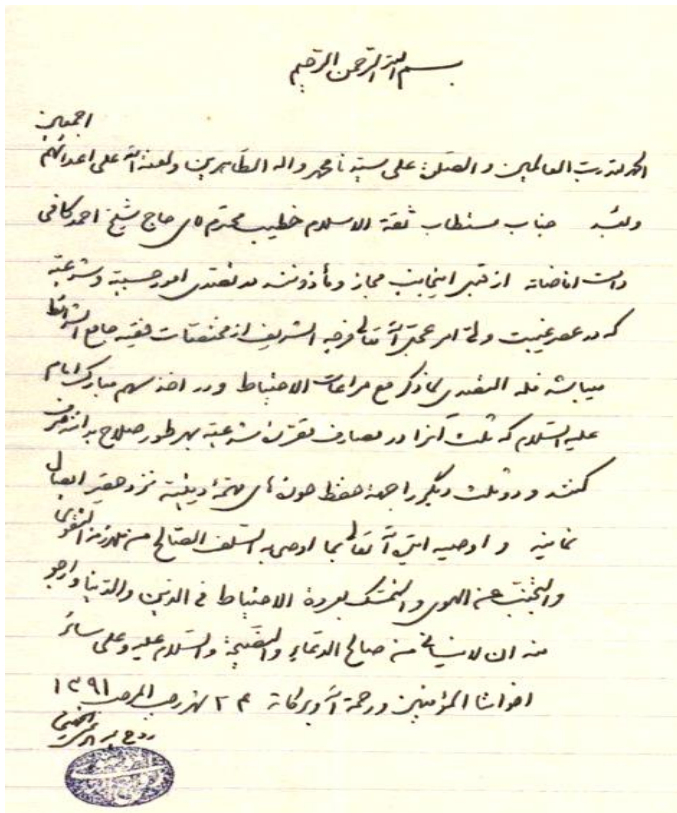 بسم الله الرحمن الرحیم
الحمد لله رب العالمین و الصلوة علی سیدنا محمد و اله الطاهرین و لعنة الله علی اعدائهم اجمعین
و بعد جناب مستطاب ثقة الاسلام خطیب محترم آقای حاج شیخ احمد کافی
دامت افاضاته از قبل اینجانب مجاز و مأذونند در تصدی امور حسبیه و شرعیه
که در عصر غیبت ولی امر عجل الله تعالی فرجه الشریف از مختصات فقیه جامع الشرائط
میباشد فله التصدی لما ذکر مع مراعات الاحتیاط و در اخذ سهم مبارک امام
علیه السلام که ثلث آنرا در مصارف مقرره شرعیه بهر طور صلاح بدانند صرف
کنند و دو ثلث دیگر را جهة حفظ حوزه های مهمه دینیه نزد حقیر ایصال
نمایند و اوصیه ایده الله تعالی بما اوصی به السلف الصالح من ملازمة التقوی
والتجنب عن الهوی و التمسک بعروة الاحتیاط فی الدین والدنیا وارجو
منه ان لا ینسانی من صالح الدعاء والنصیحة والسلام علیه وعلی سائر
اخواننا المؤمنین ورحمة الله وبرکاته ۲۴ شهر رجب المرجب ۱۳۹۱
روح الله الموسوی الخمینی